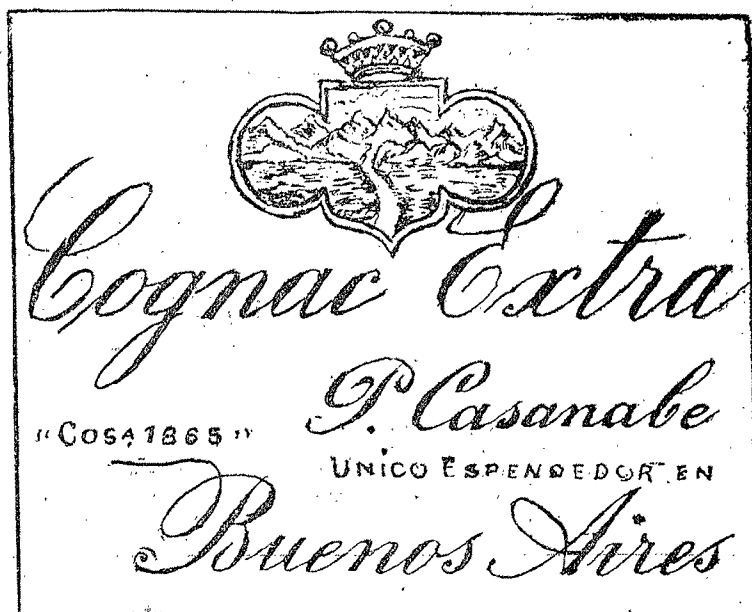 Cognac Extra
P. Casanabe
"Cosª 1865"
UNICO ESPENDEDOR EN
Buenos Aires